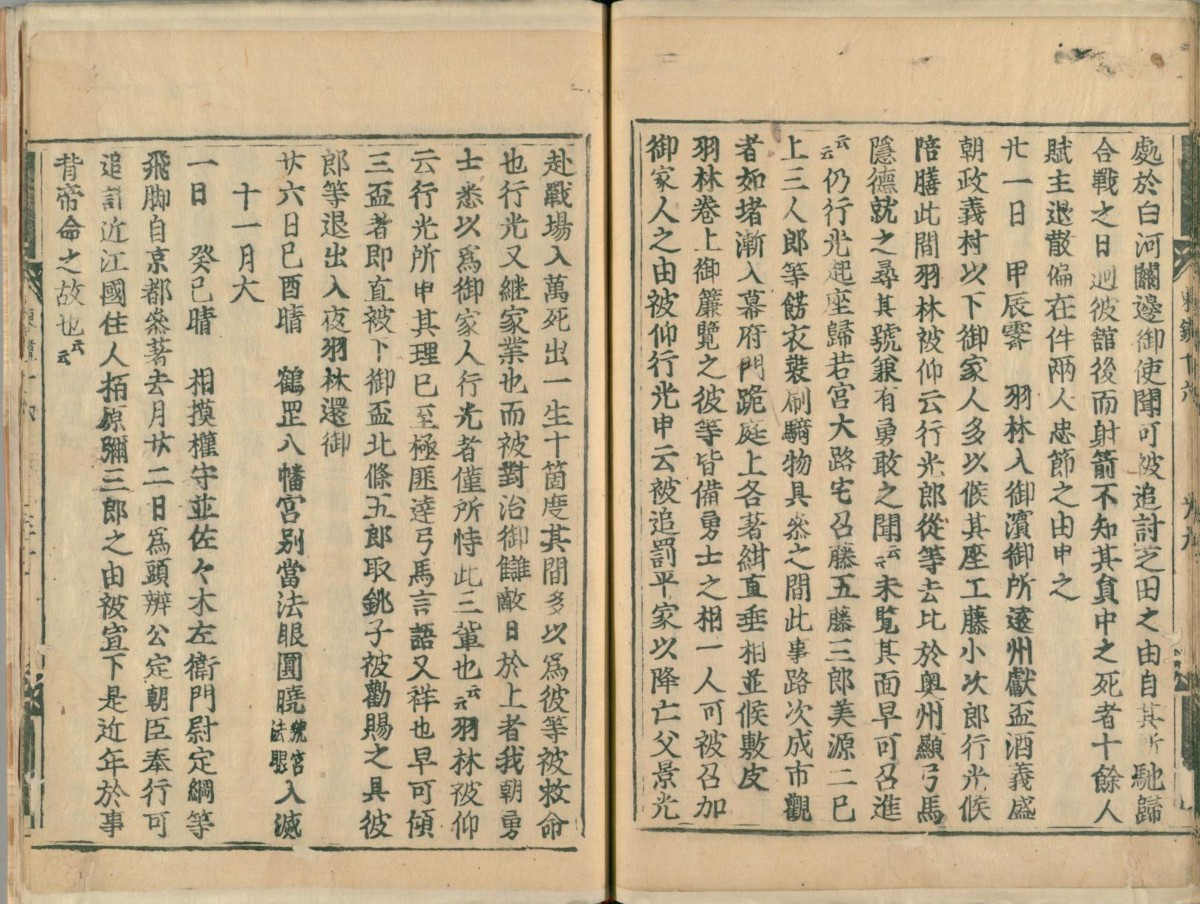 處於白河關邊御使聞可被追討芝田之由自其所馳歸
合戰之日廻彼舘後而射箭不知其負中之死者十餘人
賊主退散偏在件兩人忠節之由申之
廿一日　甲辰霽　羽林入御濱御所遠州獻盃酒義盛
朝政義村以下御家人多以候其座工藤小次郎行光候
陪膳此間羽林被仰云行光郎從等去比於奥州顯弓馬
隱德就之尋其號兼有勇敢之聞云々未覽其面早可召進
云々仍行光起座歸若宮大路宅召藤五藤三郎美源二已
上三人郎等餝衣裝刷騎物具参之間此事路次成市觀
者如堵漸入幕府門跪庭上各著紺直垂相並候敷皮
羽林卷上御簾覽之彼等皆備勇士之相一人可被召加
御家人之由被仰行光申云被追罰平家以降亡父景光
赴戰場入萬死出一生十箇度其間多以爲彼等被救命
也行光又継家業也而被對治御讎敵日於上者我朝勇
士悉以爲御家人行光者僅所恃此三輩也云々羽林被仰
云行光所申其理已至極匪達弓馬言語又祥也早可傾
三盃者即直被下御盃北條五郎取銚子被勸賜之具彼
郎等退出入夜羽林還御
廿六日己酉晴　鶴罡八幡宮别當法眼圓曉號宮法眼入滅
十一月大
一日　癸已晴　相摸權守並佐々木左衛門尉定綱等
飛脚自京都参著去月廿二日爲頭辨公定朝臣奉行可
追討近江國住人栢原彌三郎之由被宣下是近年於事
背帝命之故也云云